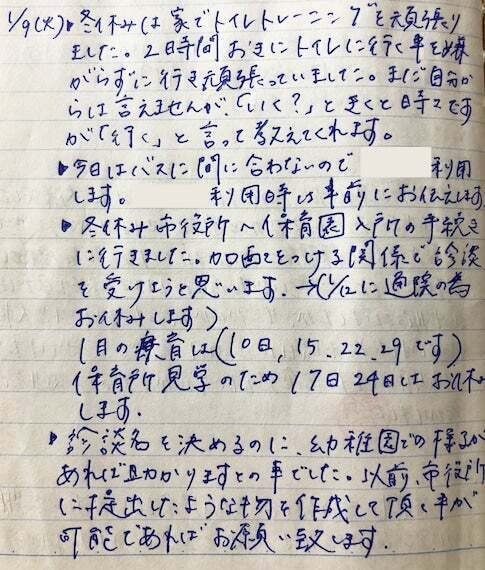 1/9(火)▶冬休みは家でトイレトレーニングを頑張り
ました。2時間おきにトイレに行く事を嫌
がらずに行き頑張っていました。まだ自分か
らは言えませんが、「いく?」ときくと時々です
が「行く」と言って教えてくれます。
▶今日はバスに間に合わないので 利用
します。 利用時は事前にお伝えします
▶冬休み市役所へ保育園入所の手続き
に行きました。加配をつける関係で診談
を受けようと思います。→(1/12に通院の為
お休みします)
1月の療育は(10日, 15. 22. 29です)
保育所見学のため 17日 24日はお休み
します.
▶診談名を決めるのに、幼稚園での様子が
あれば助かりますとの事でした。以前、市役所
に提出したような物を作成して頂く事が
可能であればお願い致します.